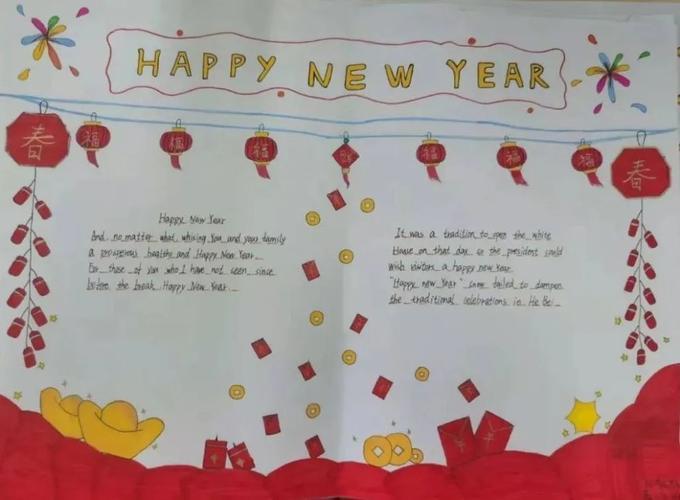 HAPPY NEW YEAR
春 福 福 福 福 福 福 春
Happy New Year
And no matter what, whising You and your family
a prosperous healthy and Happy New Year.
For those of you who I have not seen since
before the break, Happy New Year.
It was a tradition to open the white
House on that day so the president could
wish visitors a happy new Year
"Happy new Year" same failed to dampen
the traditional celebrations in He Bei